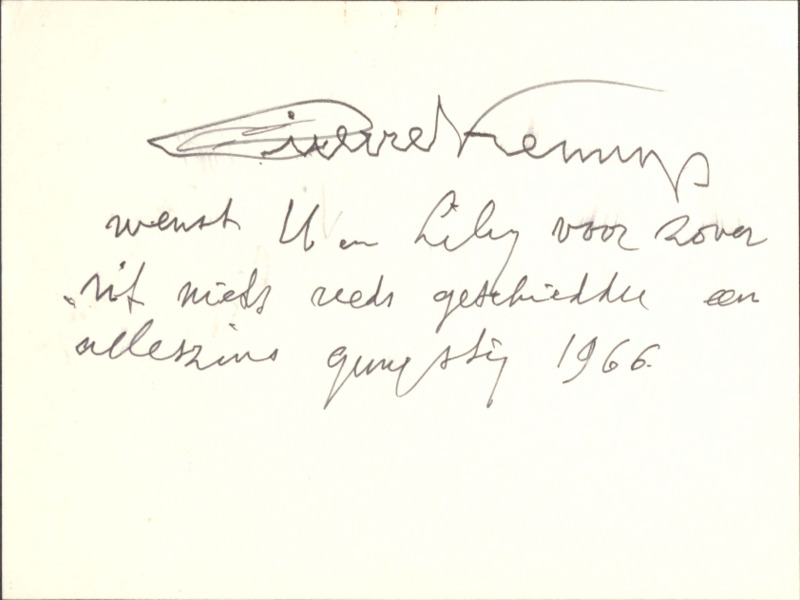 Pierre Kemp
wenst U en Lily voor zover
niets reeds geschiedde een
alleszins gunstig 1966.